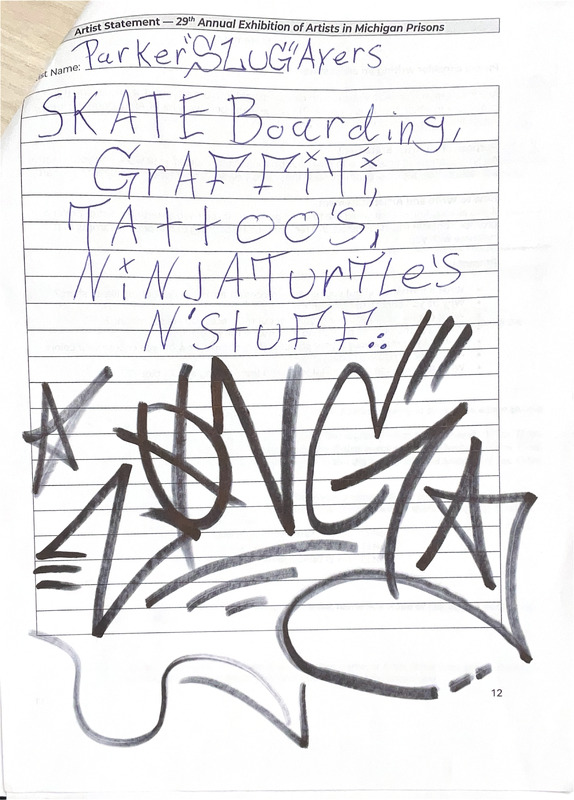 Artist Statement — 29th Annual Exhibition of Artists in Michigan Prisons
st Name: Parker "SLUG" Ayers
SKATE Boarding,
GrAFFiTi,
TAttoo's,
NiNJATurTLe's
N'StuFF..
12